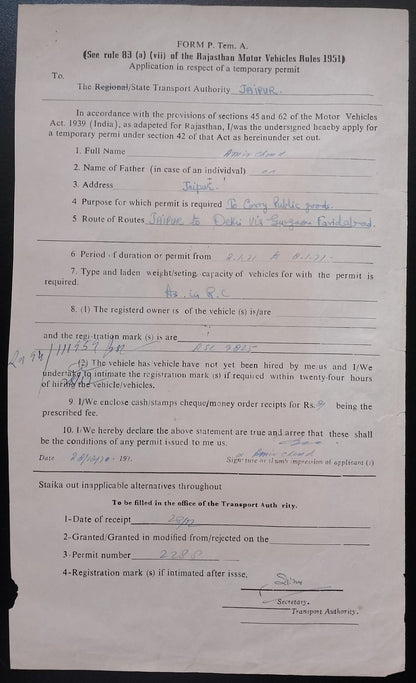 FORM P. Tem. A.
(See rule 83 (a) (vii) of the Rajasthan Motor Vehicles Rules 1951)
Application in respect of a temporary permit
To.
The Regional/State Transport Authority JAIPUR.
In accordance with the provisions of sections 45 and 62 of the Motor Vehicles
Act. 1939 (India), as adapeted for Rajasthan, I/was the undersigned heaeby apply for
a temporary permi under section 42 of that Act as hereinunder set out.
1. Full Name Amir chand
2. Name of Father (in case of an individval)
3. Address Jaipur.
4 Purpose for which permit is required To Carry Public goods.
5 Route of Routes JAIPUR to Delhi Via Gurgaon Faridabad.
6 Period of duration or permit from 2.1.71 to 8.1.71.
7. Type and laden weight/seting capacity of vehicles for with the permit is
required.
As in R.C
8. (1) The registerd owner is of the vehicle (s) is/are
and the regi-tration mark (s) is are
(2) The vehicle has vehicle have not yet been hired by me us and I/We
undertake to intimate the registration mark (s) if required within twenty-four hours
of hiring the vehicle/vehicles.
9. I/We enclose cash/stamps cheque/money order receipts for Rs. being the
prescribed fee.
10. I/We hereby declare the above statement are true and arree that these shall
be the conditions of any permit issued to me us.
Amir chand
Date 197. Signature or thumb impression of applicant (s)
Staika out inapplicable alternatives throughout
To be filled in the office of the Transport Auth rity.
1-Date of receipt
2-Granted/Granted in modified from/rejected on the
3-Permit number 2288
4-Registration mark (s) if intimated after issse,
Secretary.
Transport Authority.